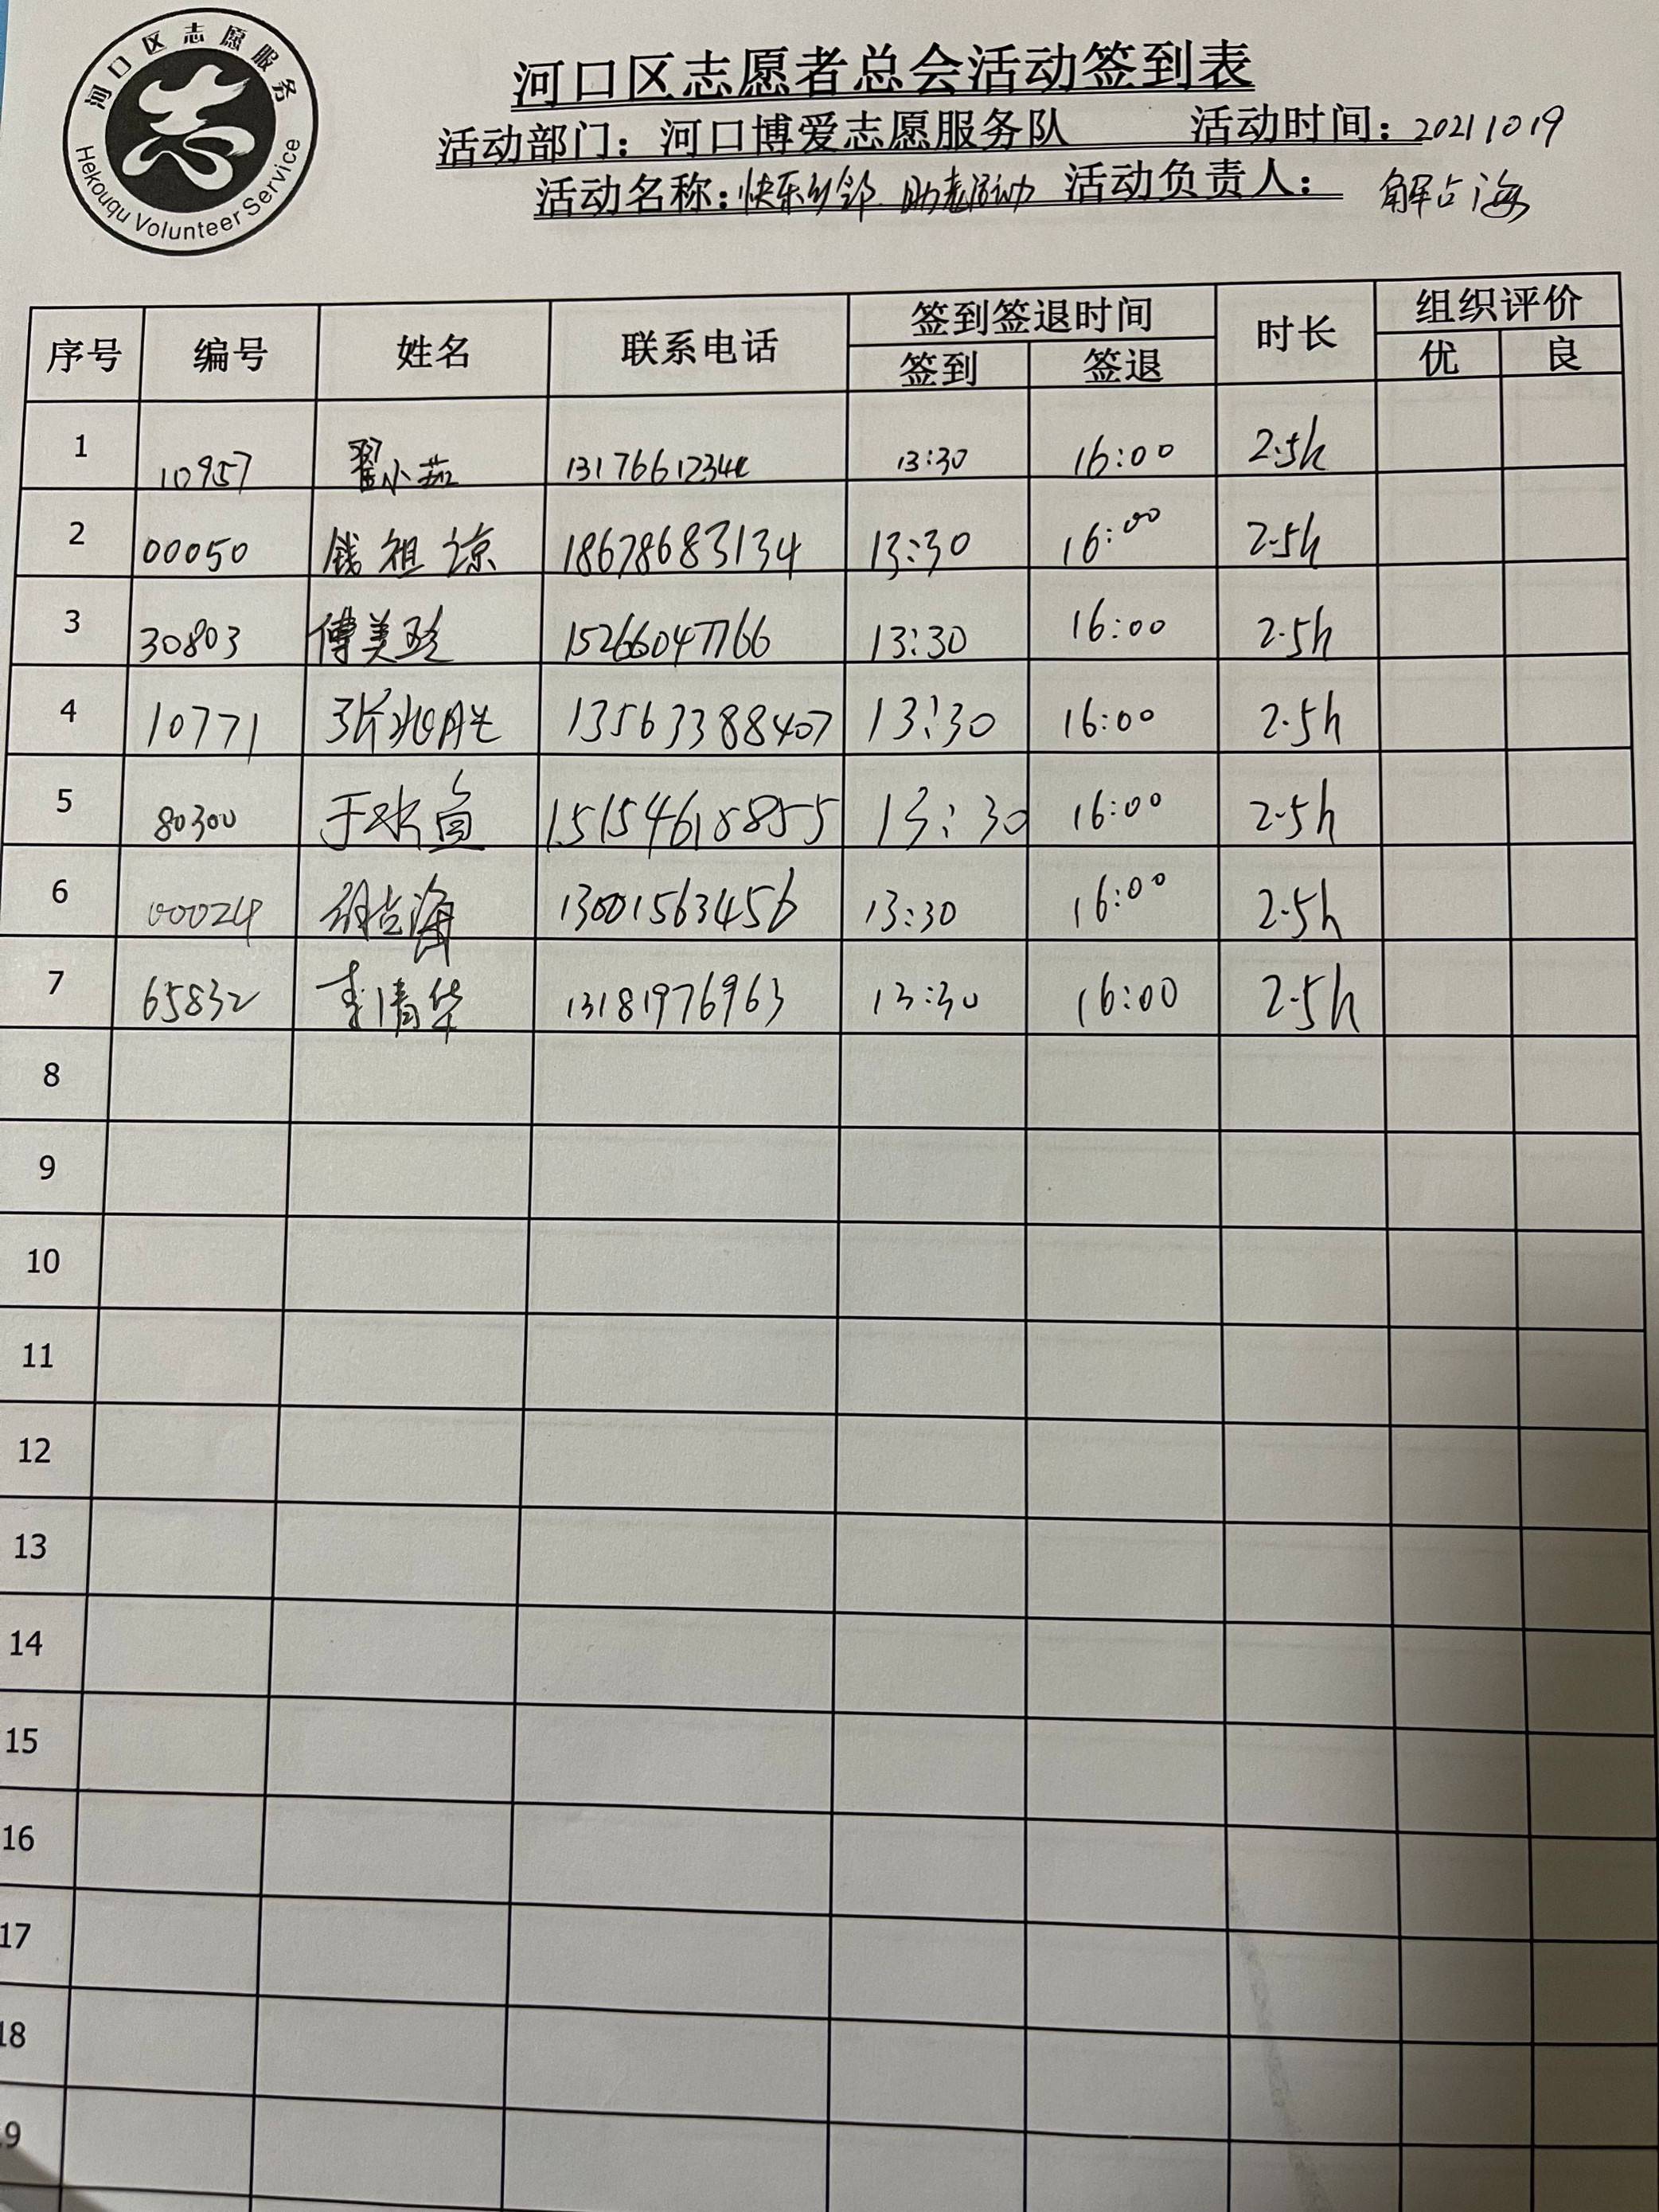 河口区志愿服务
Hekouqu Volunteer Service
河口区志愿者总会活动签到表
活动部门：河口博爱志愿服务队 活动时间：20211019
活动名称：快乐乡邻 助老活动 活动负责人： 解占海
序号 编号 姓名 联系电话 签到签退时间 时长 组织评价
签到 签退 优 良
1 10957 翟小茹 13:30 16:00 2.5h
2 00050 钱祖谅 18678683134 13:30 16:00 2.5h
3 30803 傅美玲 15266047766 13:30 16:00 2.5h
4 10771 张兆胜 13563388407 13:30 16:00 2.5h
5 80300 于冰 15154618855 13:30 16:00 2.5h
6 00024 解占海 13001563456 13:30 16:00 2.5h
7 65832 李清华 13181976963 13:30 16:00 2.5h
8
9
10
11
12
13
14
15
16
17
18
9